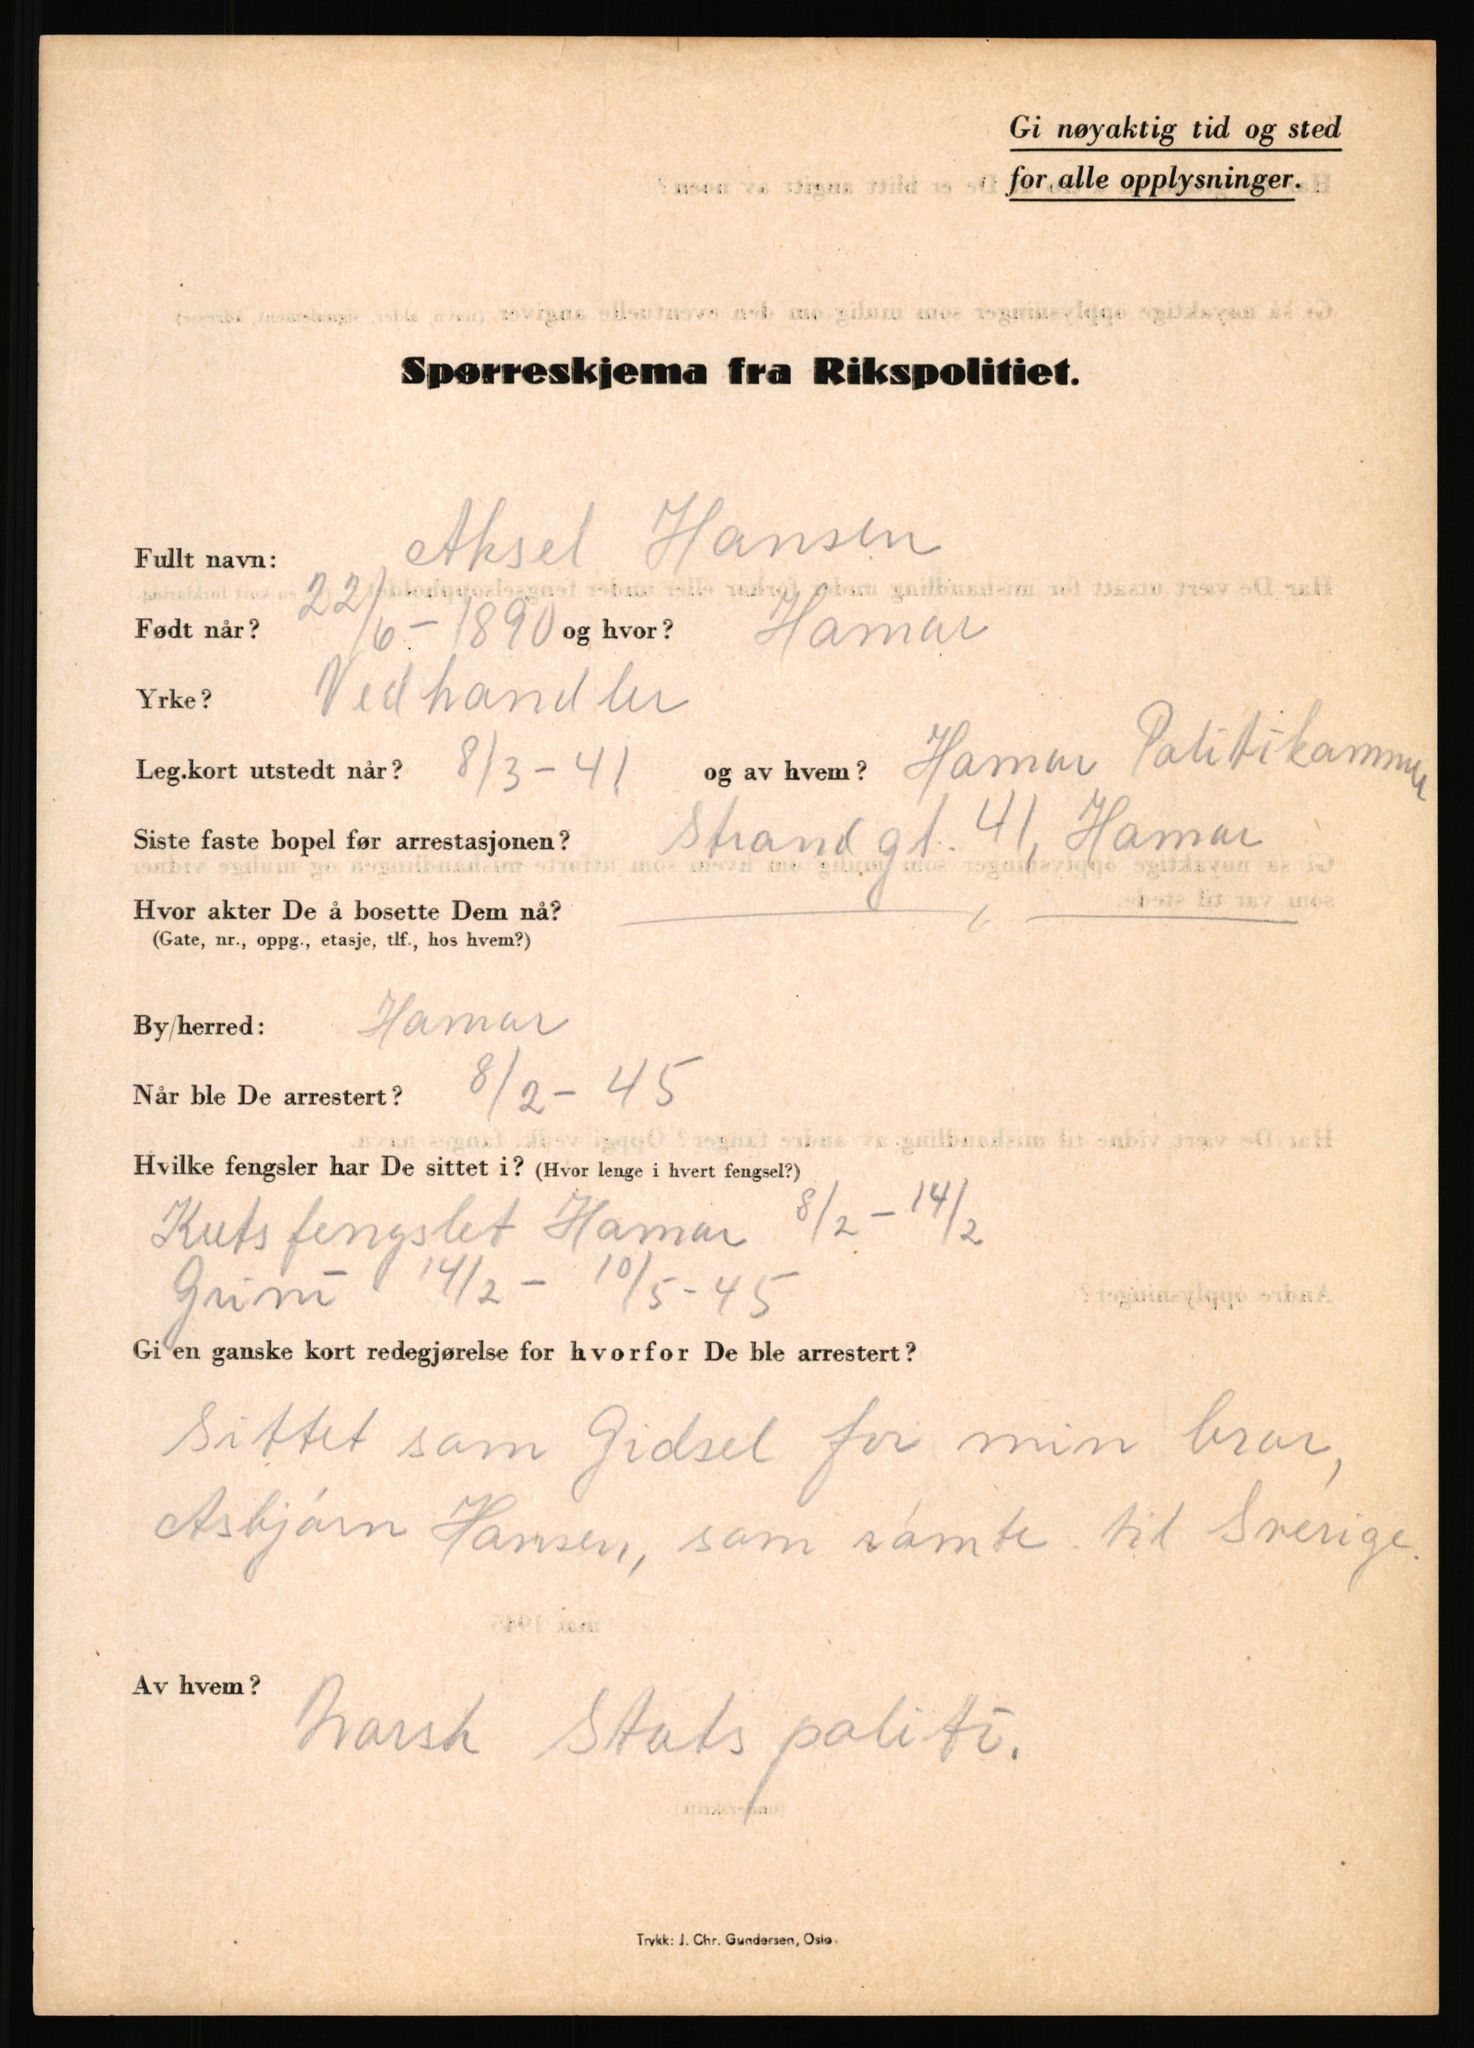 Gi nøyaktig tid og sted
for alle opplysninger.
Spørreskjema fra Rikspolitiet.
Fullt navn: Aksel Hansen
Født når? 22/6-1890 og hvor? Hamar
Yrke? Vedhandler
Leg.kort utstedt når? 8/3-41 og av hvem? Hamar Politikammer
Siste faste bopel før arrestasjonen? Strandgt. 41, Hamar
Hvor akter De å bosette Dem nå? — „ —
(Gate, nr., oppg., etasje, tlf., hos hvem?)
By/herred: Hamar
Når ble De arrestert? 8/2-45
Hvilke fengsler har De sittet i? (Hvor lenge i hvert fengsel?)
Kretsfengslet Hamar 8/2-14/2
Grini 14/2-10/5-45
Gi en ganske kort redegjørelse for hvorfor De ble arrestert?
Sittet som Gidsel for min bror,
Asbjørn Hansen, som rømte til Sverige.
Av hvem? Norsk Statspoliti.
Trykk: J. Chr. Gundersen, Oslo.